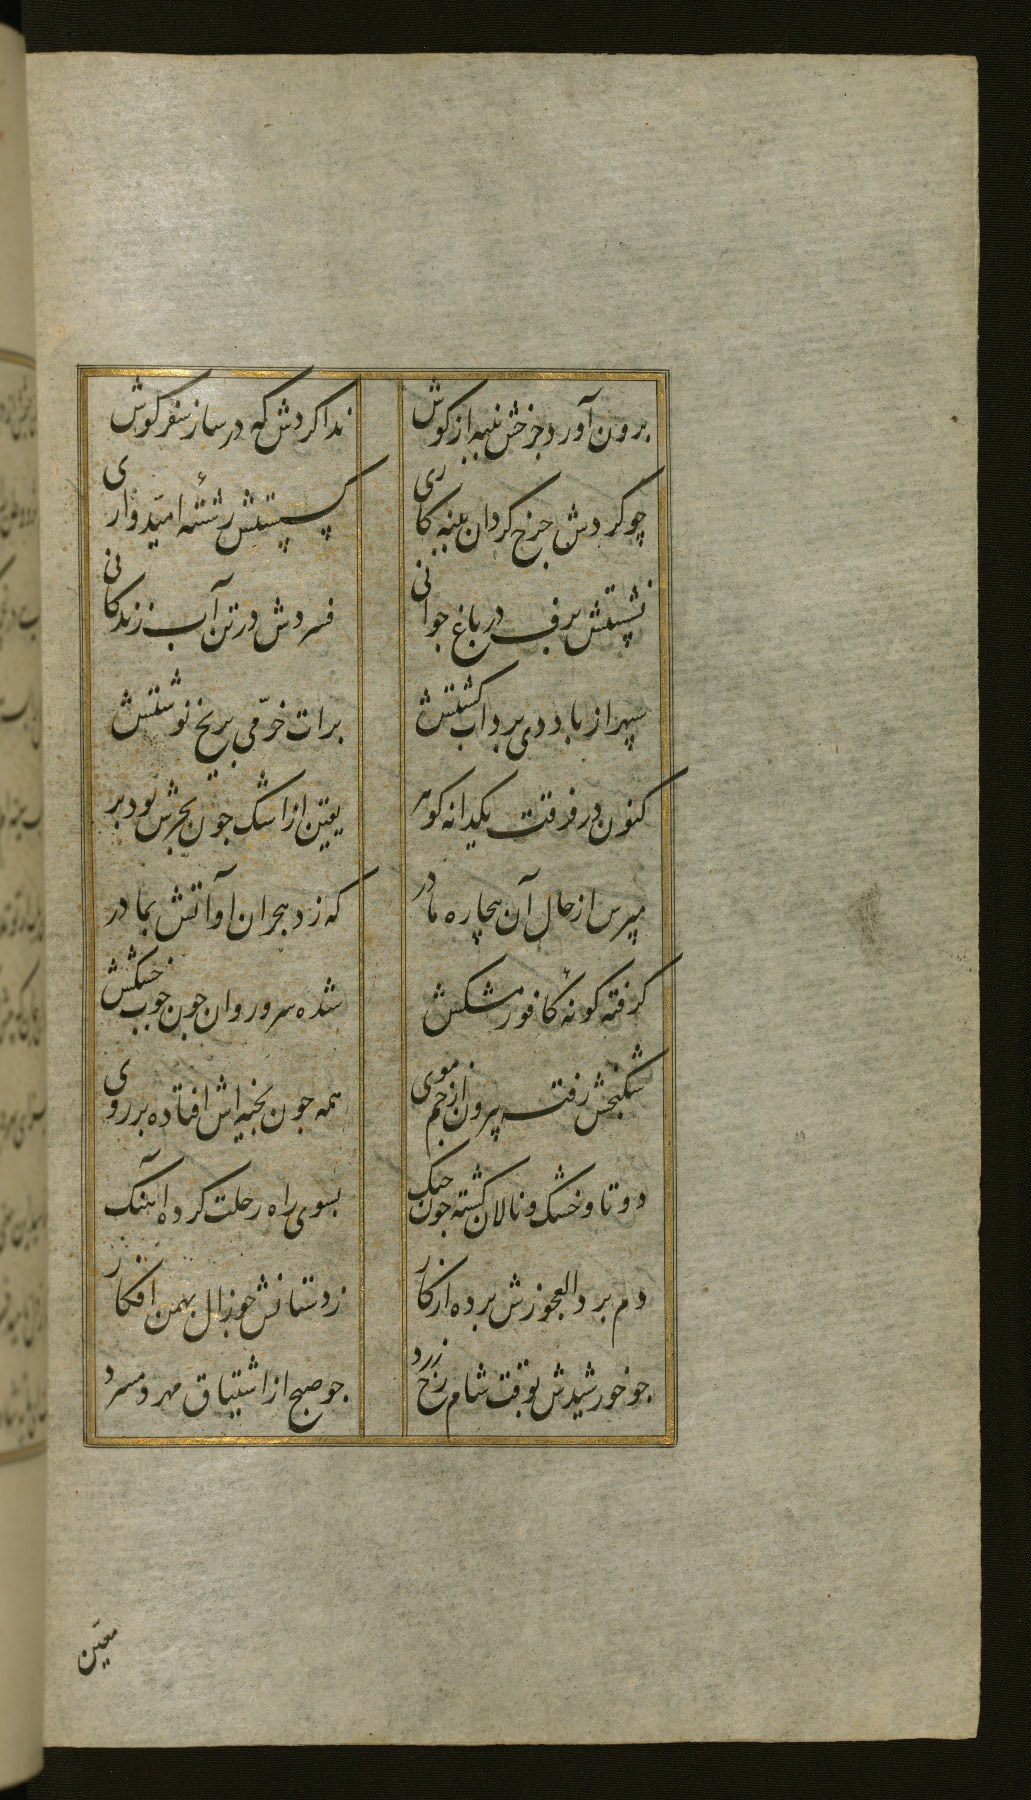 برون آورد چرخش پنبه از کوش
ندا کردش که در ساز سفر کوش
چو کردش چرخ کردان پنبه کاری
کسستش رشتهٔ امیدواری
نشستش برف در باغ جوانی
فسردش در تن آب زندکانی
سپهر از باد دی برد آب کشتش
برات خرّمی بر یخ نوشتش
کنون در فرقت یکدانه کوهر
یقین از اشک چون بحرش بود بر
مپرس از حال آن بیچاره مادر
که زد هجران او آتش بمادر
کرفته کونهٔ کافور مشکش
شده سرو روان چون چوب خشکش
شکنجش رفته بیرون از خم موی
همه چون بخیه اش افتاده بر روی
دوتا و خشک و نالان کشته چون چنک
بسوی راه رحلت کرده آهنک
دم برد العجوزش برده از کار
ز دستانش چو زال بهمن افکار
چو خورشیدش بوقت شام رخ زرد
چو صبح از اشتیاق مهر دم سرد
معین